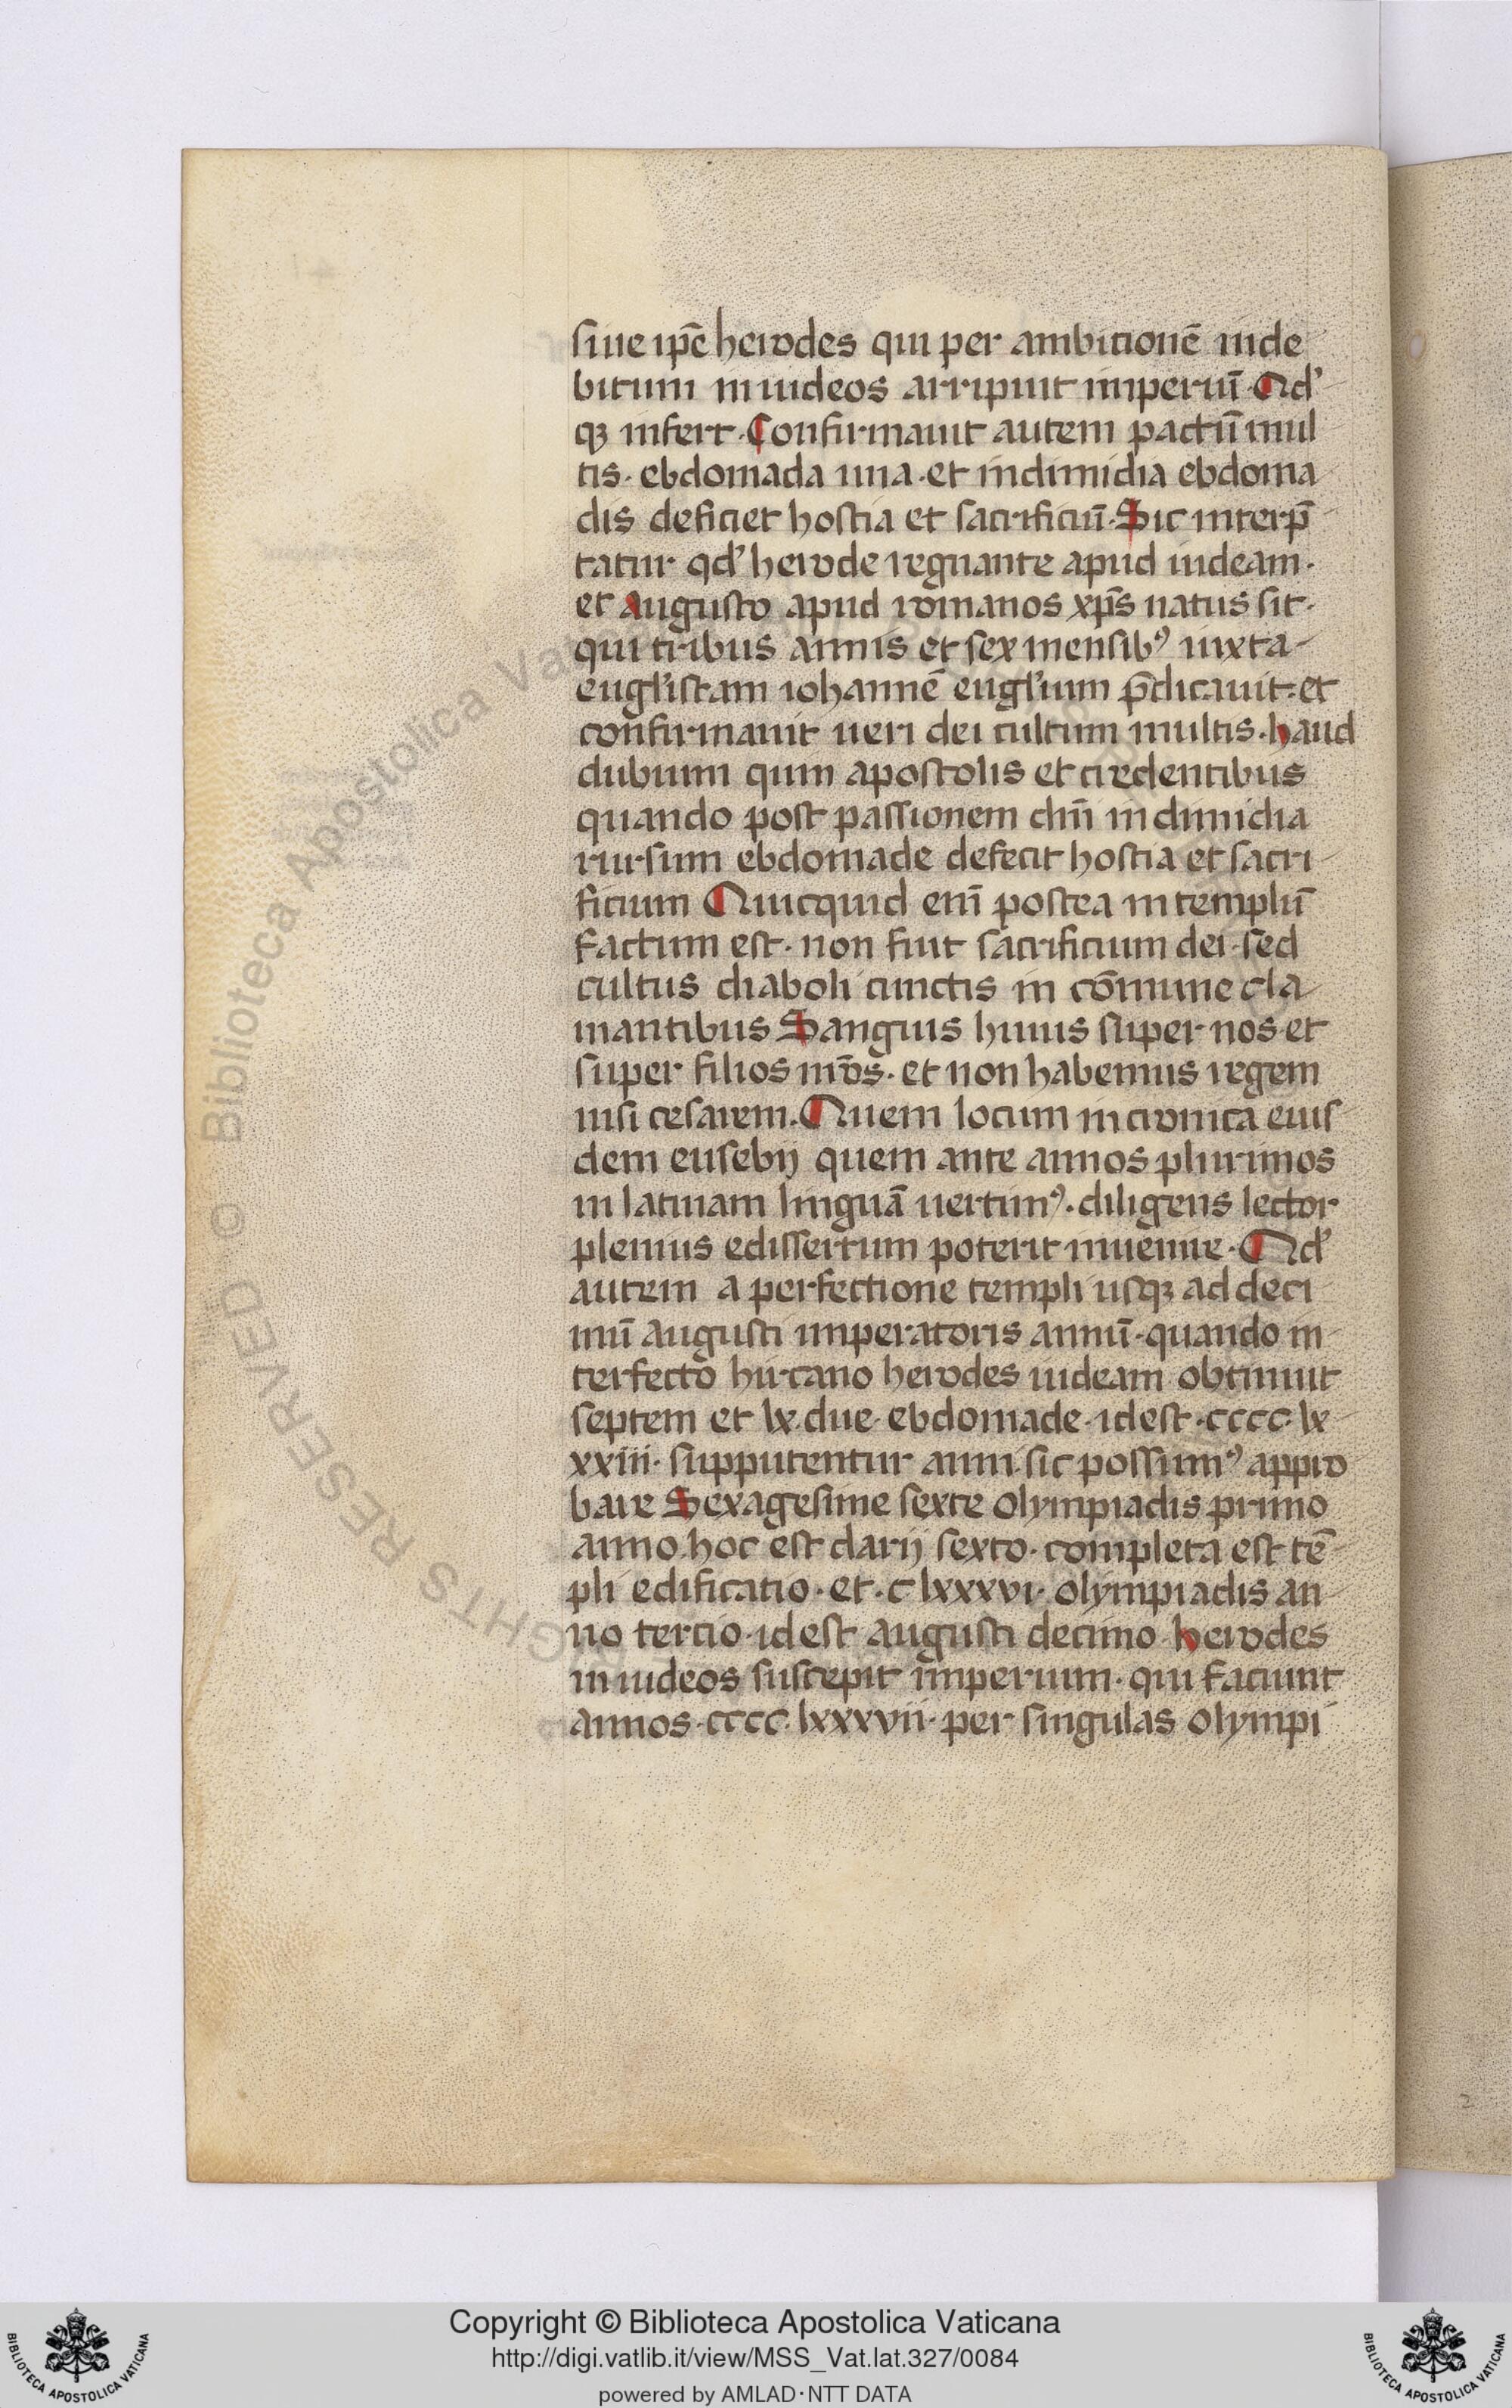 siue ip̄e herodes qui per ambitionē inde
bitum in iudeos arripuit imperiū. Qd'
qꝫ infert. Confirmauit autem pactū mul
tis. ebdomada una. et in dimidia ebdoma
dis deficiet hostia et sacrificiū. Sic interp̄
tatur qd' herode regnante apud iudeam.
et Augusto apud romanos xp̄s natus sit.
qui tribus annis et sex mensibꝰ iuxta
eugl'istam iohannē eugl'ium p̄dicauit. et
confirmauit ueri dei cultum multis. haud
dubium quin apostolis et credentibus
quando post passionem dn̄i in dimidia
rursum ebdomade defecit hostia et sacri
ficium Quicquid eni̅ postea in templū
factum est. non fuit sacrificium dei. sed
cultus diaboli cunctis in cōmune cla
mantibus Sanguis huius super nos et
super filios nr̄os. et non habemus regem
nisi cesarem. Quem locum in cronica eius
dem eusebij quem ante annos plurimos
in latinam linguā uertimꝰ. diligens lector
plenius edissertum poterit inuenire. Qd'
autem a perfectione templi usqꝫ ad deci
mū augusti imperatoris annū. quando in
terfecto hircano herodes iudeam obtinuit
septem et lx. due. ebdomade. idest. cccc. lx
xxiii. supputentur anni. sic possumꝰ appro
bare Sexagesime sexte olympiadis primo
anno. hoc est darij sexto. completa est tē
pli edificatio. et. c lxxxvi. olympiadis an
no tercio. idest augusti decimo herodes
in iudeos suscepit imperium. qui faciunt
annos. cccc. lxxxvii. per singulas olympi
2
© Biblioteca Apostolica Vaticana
RIGHTS RESERVED
Copyright © Biblioteca Apostolica Vaticana
http://digi.vatlib.it/view/MSS_Vat.lat.327/0084
powered by AMLAD·NTT DATA
BIBLIOTECA APOSTOLICA VATICANA
BIBLIOTECA APOSTOLICA VATICANA